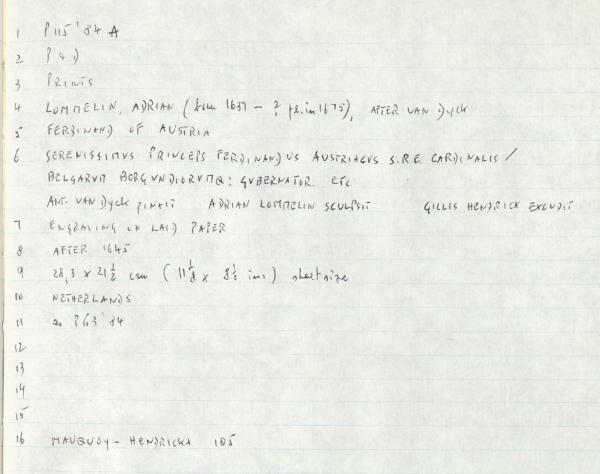 1 P115'84 A
2 P4)
3 PRINTS
4 LOMMELIN, ADRIAN (from 1637 – ? pl. in 1675), AFTER VAN DYCK
5 FERDINAND OF AUSTRIA
6 SERENISSIMVS PRINCEPS FERDINANDVS AUSTRIACVS S.R.E. CARDINALIS /
BELGARVM BORGVNDIORVMQ: GVBERNATOR. ETC
ANT. VAN DYCK PINXIT ADRIAN LOMMELIN SCULPSIT GILLIS HENDRICX EXCUDIT
7 ENGRAVING ON LAID PAPER
8 AFTER 1645
9 28,3 x 21½ cm (11⅛ x 8½ ins) sheet size
10 NETHERLANDS
11 as P63'84
12
13
14
15
16 MAUQUOY-HENDRICKX 105